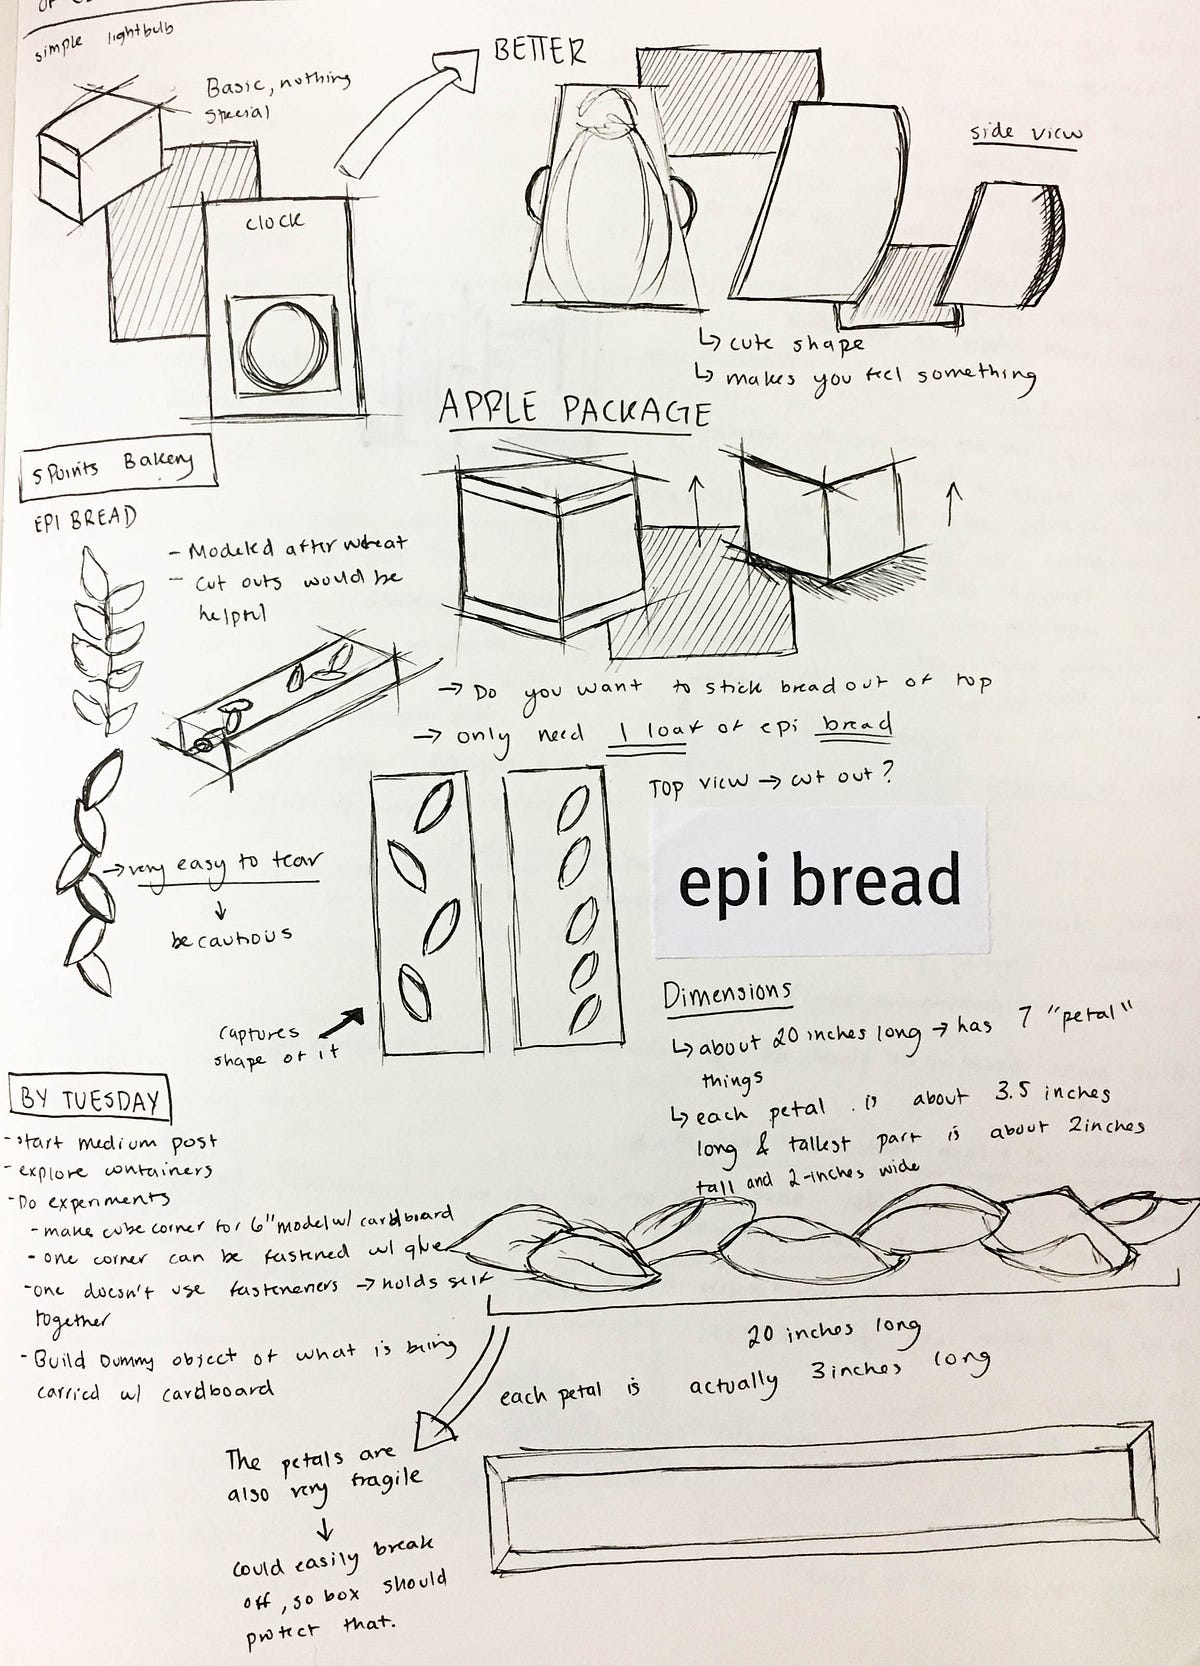 simple lightbulb
Basic, nothing
special
BETTER
side view
clock
↳ cute shape
↳ makes you feel something
APPLE PACKAGE
5 Points Bakery
EPI BREAD
- Modeled after wheat
- Cut outs would be
helpful
→ Do you want to stick bread out of top
→ only need 1 loaf of epi bread
TOP view → cut out?
epi bread
→ very easy to tear
↓
be cautious
captures
shape of it
Dimensions
↳ about 20 inches long → has 7 "petal"
things
↳ each petal is about 3.5 inches
long & tallest part is about 2 inches
tall and 2-inches wide
BY TUESDAY
- start medium post
- explore containers
- Do experiments
- make cube corner for 6" model w/ cardboard
- one corner can be fastened w/ glue
- one doesn't use fasteners → holds self
together
- Build Dummy object of what is being
carried w/ cardboard
20 inches long
each petal is actually 3 inches long
The petals are
also very fragile
↓
could easily break
off, so box should
protect that.